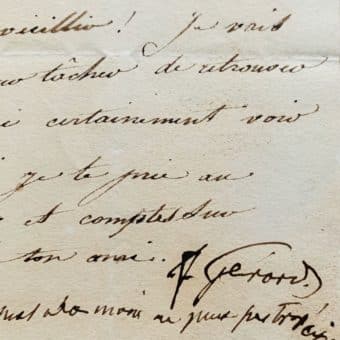 vieillir ! Je vais
tâcher de retrouver
certainement voir
je te prie au
et comptes sur
ton ami.
F Gérard.
ne peux pas